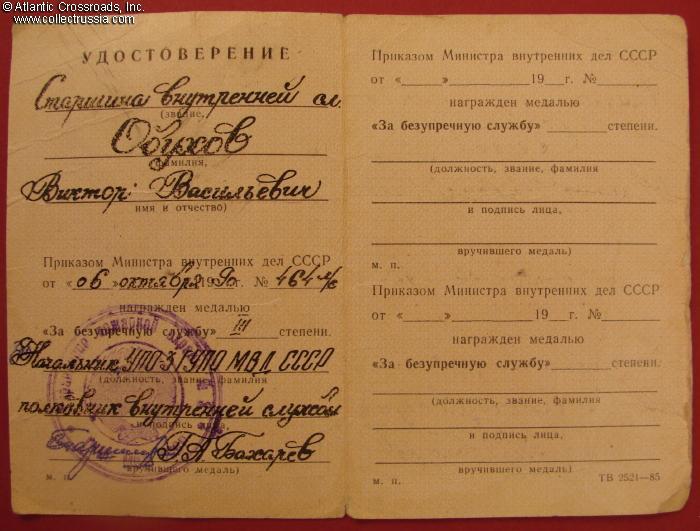 © Atlantic Crossroads, Inc.
www.collectrussia.com
УДОСТОВЕРЕНИЕ
Старшина внутренней сл.
(звание,
Обухов
фамилия,
Виктор Васильевич
имя и отчество)
Приказом Министра внутренних дел СССР
от «06» октября 1990г. № 464 л/с
награжден медалью
«За безупречную службу» III степени.
Начальник УПО-3 ГУПО МВД СССР
(должность, звание, фамилия
полковник внутренней службы
и подпись лица,
Г.А. Бахарев
вручившего медаль)
м. п.
Приказом Министра внутренних дел СССР
от «____»________19__г. №______
награжден медалью
«За безупречную службу» ________степени.
(должность, звание, фамилия
и подпись лица,
вручившего медаль)
м. п.
Приказом Министра внутренних дел СССР
от «____»________19__г. №______
награжден медалью
«За безупречную службу» ________степени.
(должность, звание, фамилия
и подпись лица,
вручившего медаль)
м. п. ТВ 2521—85